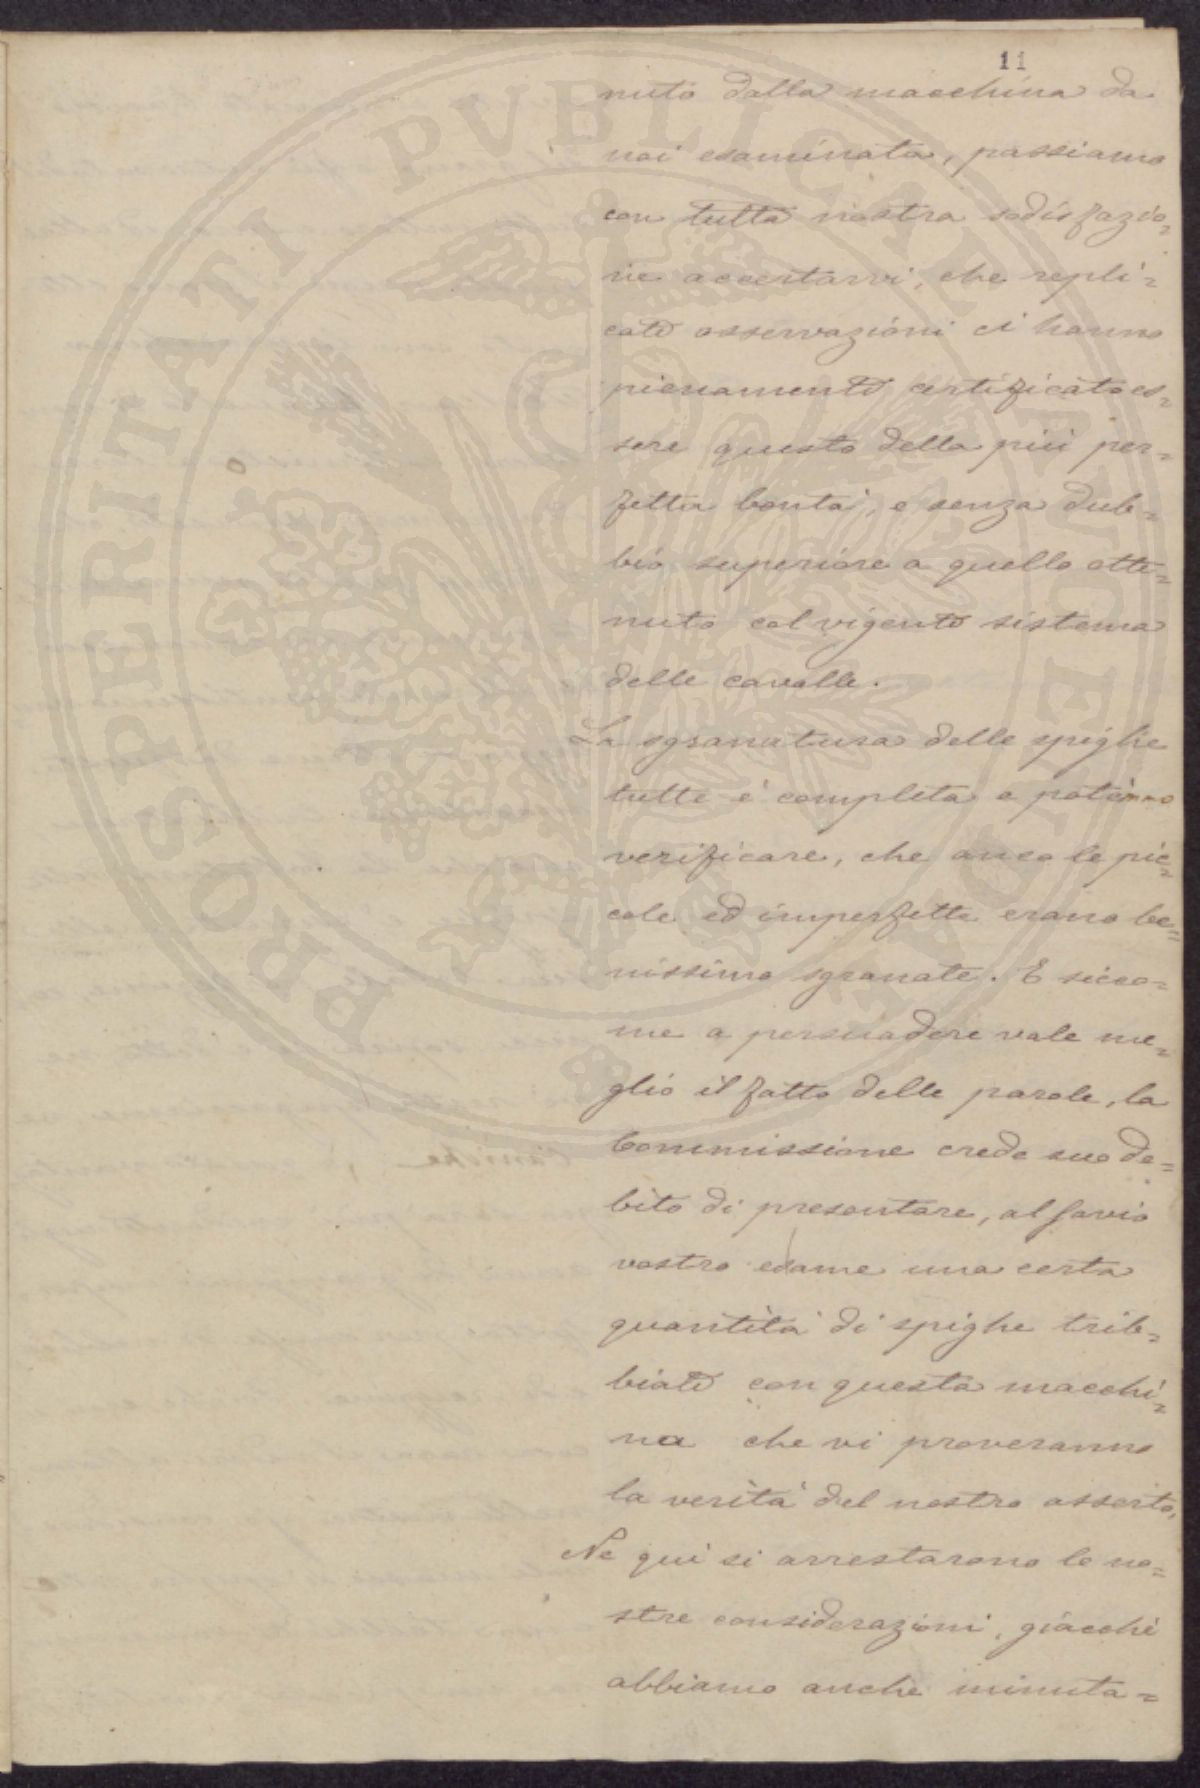 11
nuto dalla macchina da
noi esaminata, passiamo
con tutta nostra sodisfazio=
ne accertarvi, che repli=
cate osservazioni ci hanno
pienamente certificato es=
sere questo della più per=
fetta bontà, e senza dub=
bio superiore a quello otte=
nuto col vigente sistema
delle cavalle.
La sgranatura delle spighe
tutte è completa e potemmo
verificare, che anco le pic=
cole ed imperfette erano be=
nissimo sgranate. E sicco=
me a persuadere vale me=
glio il fatto delle parole, la
Commissione crede suo de=
bito di presentare, al savio
vostro esame una certa
quantità di spighe trib=
biate con questa macchi=
na che vi proveranno
la verità del nostro asserto.
Ne qui si arrestarono le no=
stre considerazioni, giacchè
abbiamo anche minuta=
PROSPERITATI PVBLICAE AVGENDAE